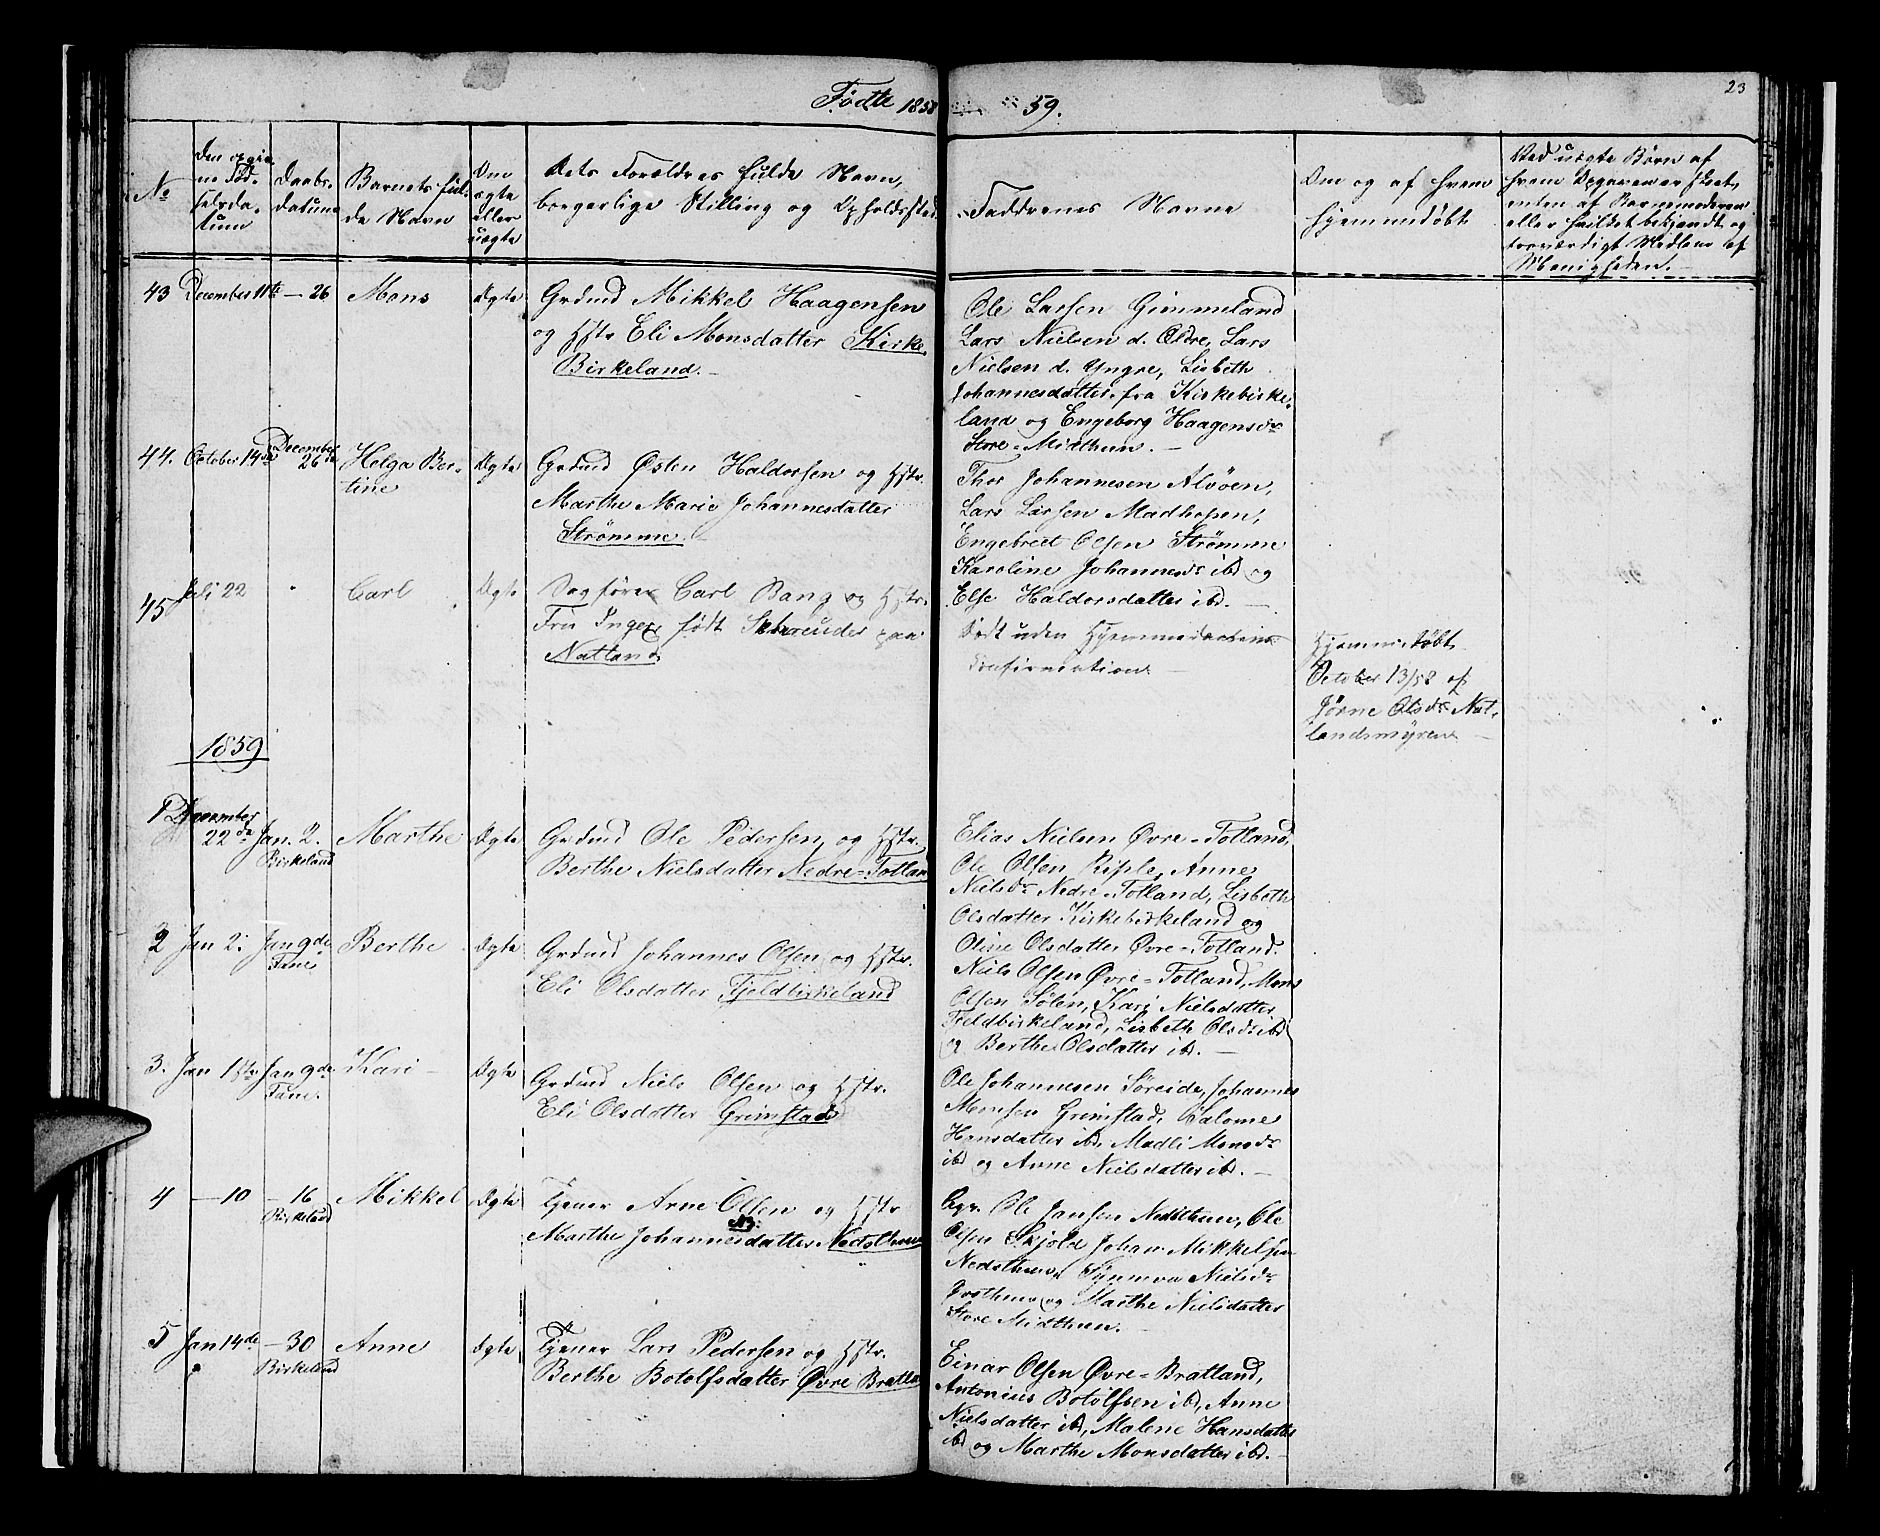 Fødte 1858
59.
23
No
Den opgiv
ne Fød-
selsda-
tum
Daabs-
datum
Barnets ful-
de Navn
Om
ægte
eller
uægte
Dets Forældres fulde Navn,
borgerlige Stilling og Opholdssted
Faddrenes Navne
Om og af hvem
hjemmedøbt
Ved uægte Børn af
hvem Opgaven er skeet,
enten af Barnemoderen
eller hvilket bekjendt og
troværdigt Medlem af
Menigheden.
43 December 11te — 26 Mons Ægte Grdmd Mikkel Haagensen
og Hstr Eli Monsdatter Kirke
Birkeland. —
Ole Larsen Gimmeland
Lars Nielsen d. Ældre, Lars
Nielsen d. Yngre, Lisbeth
Johannesdatter fra Kirkebirke-
land og Engeborg Haagensdr
Store-Midthun. —
44. October 14de December 26de Helga Ber-
tine Ægte Grdmd Østen Haldorsen og Hstr.
Marthe Marie Johannesdatter
Strømme. —
Thor Johannesen Alvøen,
Lars Larsen Madhopen,
Engebrect Olsen Strømme
Karoline Johannesdr ibd og
Else Haldorsdatter ibd. —
45 Juli 22 Carl Ægte Sagfører Carl Bang og Hstr.
Fru Inger født Schreuder paa
Natland
Død uden Hjemmedaabens
Confirmation
Hjemmedøbt
October 13/58 af
Jørne Olsdr Nat-
landsmyren —
1859
1 December
22de Jan. 2. Birkeland Marthe Ægte Grdmd Ole Pedersen og Hstr.
Berthe Nielsdatter Nedre-Totlan
Elias Nielsen Øvre-Totland,
Ole Olsen Riple, Anne
Nielsdr Nedre-Totland, Lisbeth
Olsdatter Kirkebirkeland og
Oline Olsdatter Øvre-Totland.
2 Jan 2. Jan 9de Fane Berthe Ægte Grdmd Johannes Olsen og Hstr.
Eli Olsdatter Fjeldbirkeland
Niels Olsen Øvre-Totland, Mons
Olsen Sølen, Kari Nielsdatter
Feldbirkeland, Lisbeth Olsdr ibd
og Berthe Olsdatter ibd. —
3. Jan 1ste Jan 9de Fane. Kari — Ægte Grdmd Niels Olsen og Hstr.
Eli Olsdatter Grimstad
Ole Johannesen Søreide, Johannes
Monsen Grimstad, Salome
Hansdatter ibd, Madli Monsdr
ibd og Anne Nielsdatter ibd. —
4 — 10 — 16 Birkeland Mikkel Ægte Tjener Arne Olsen og Hstr
Marthe Johannesdatter Nedsthun
Ole Jansen Nedsthun, Ole
Olsen Skjold Johan Mikkelsen
Nedsthun, Synneva Nielsdr
og Marthe Nielsdatter
Store Midthun. —
5 Jan 14de — 30 Birkeland Anne Ægte Tjener Lars Pedersen og Hstr.
Berthe Botolfsdatter Øvre Bratla
Einar Olsen Øvre-Bratland,
Antonius Botolfsen ibd, Anne
Nielsdatter ibd, Malene Hansdatter
ibd og Marthe Monsdatter ibd. —